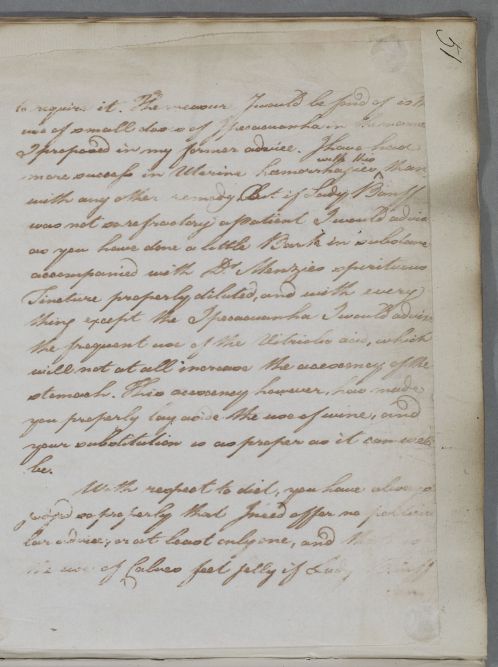 51
to require it. The measure I would be fond of is the
use of small doses of Ipecacuanha in the manner
I proposed in my former advice. I have had
more success in Uterine hemorrhagies with this than
with any other remedy But if Lady Banff
was not so refractory a patient I would advise
as you have done a little Bark in substance
accompanied with Dr Menzies spirituous
Tincture properly diluted, and with every
thing except the Ipecacuanha I would advise
the frequent use of the Vitriolic acid, which
will not at all increase the acescency of the
stomach. This acescency however, has made
you properly lay aside the use of wine, and
your substitution is as proper as it can well
be.
With respect to diet, you have always
so properly that I need offer no
advice, or at least only one, and
the use of Calves feet jelly if Lady Banff